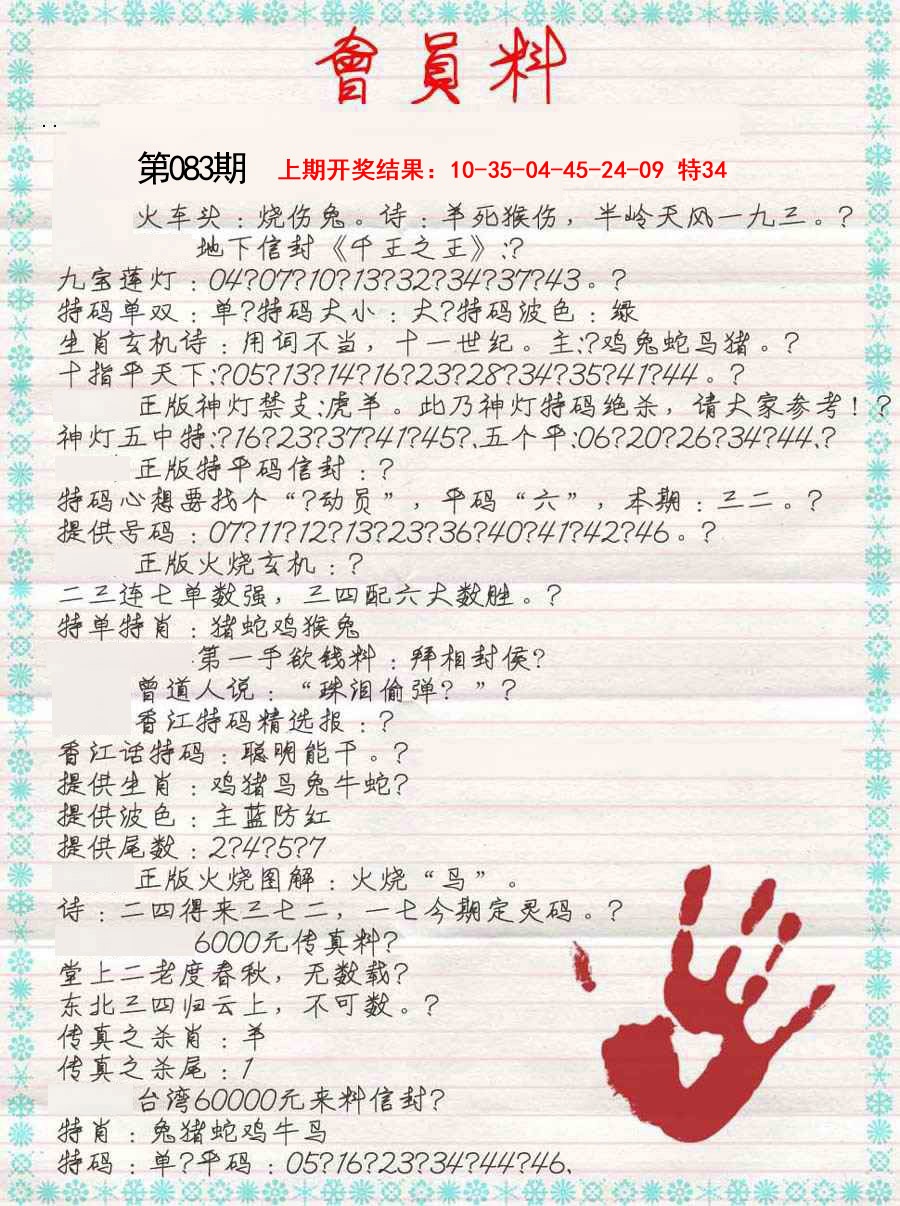 會員料
..
第083期 上期开奖结果：10-35-04-45-24-09 特34
火车头：烧伤兔。诗：羊死猴伤，半岭天风一九三。?
地下信封《千王之王》:?
九宝莲灯：04?07?10?13?32?34?37?43。?
特码单双：单?特码大小：大?特码波色：绿
生肖玄机诗：用词不当，十一世纪。主:?鸡兔蛇马猪。?
十指平天下:?05?13?14?16?23?28?34?35?41?44。?
正版神灯禁支:虎羊。此乃神灯特码绝杀，请大家参考！?
神灯五中特:?16?23?37?41?45?.五个平:06?20?26?34?44.?
正版特平码信封：?
特码心想要找个“?动员”，平码“六”，本期：三二。?
提供号码：07?11?12?13?23?36?40?41?42?46。?
正版火烧玄机：?
二三连七单数强，三四配六大数胜。?
特单特肖：猪蛇鸡猴兔
.第一手欲钱料：拜相封侯?
曾道人说：“珠泪偷弹？”?
香江特码精选报：?
香江话特码：聪明能干。?
提供生肖：鸡猪马兔牛蛇?
提供波色：主蓝防红
提供尾数：2?4?5?7
正版火烧图解：火烧“鸟”。
诗：二四得来三七二，一七今期定灵码。?
6000元传真料?
堂上二老度春秋，无数载?
东北三四归云上，不可数。?
传真之杀肖：羊
传真之杀尾：1
台湾60000元来料信封?
特肖：兔猪蛇鸡牛马
特码：单?平码：05?16?23?34?44?46.